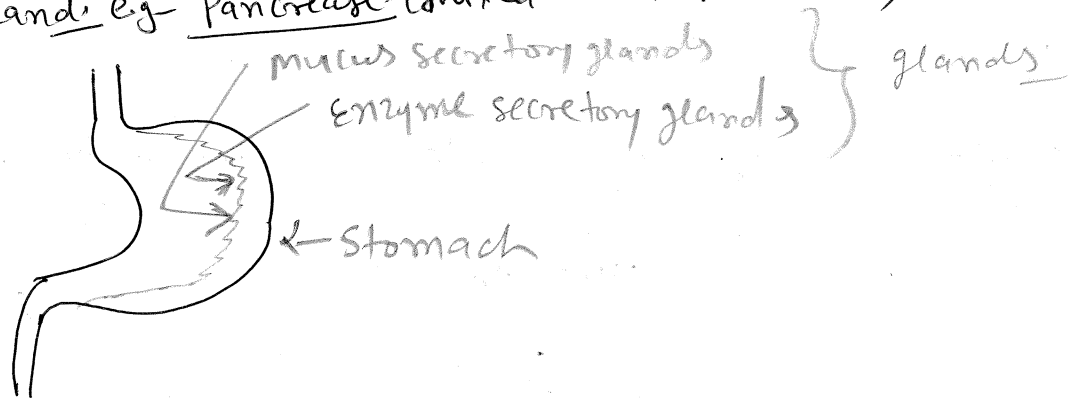 and. e.g- Pancrease
Mucus secretory glands
Enzyme secretory glands
glands
Stomach